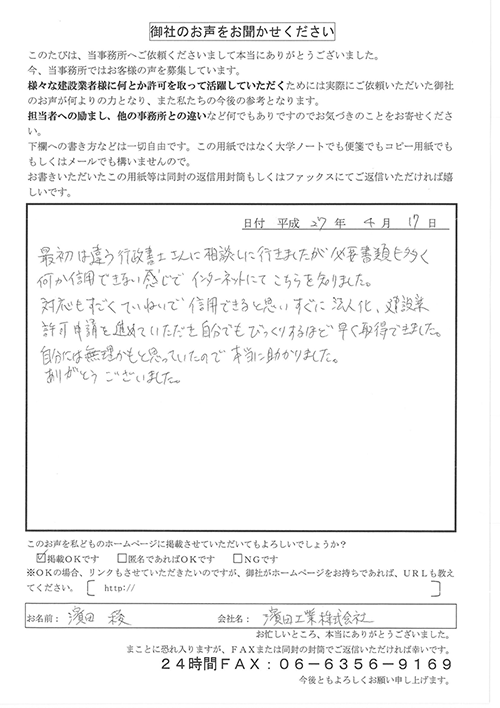 御社のお声をお聞かせください
このたびは、当事務所へご依頼くださいまして本当にありがとうございました。
今、当事務所ではお客様の声を募集しています。
様々な建設業者様に何とか許可を取って活躍していただくためには実際にご依頼いただいた御社
のお声が何よりの力となり、また私たちの今後の参考となります。
担当者への励まし、他の事務所との違いなど何でもありですのでお気づきのことをお寄せくださ
い。
下欄への書き方などは一切自由です。この用紙ではなく大学ノートでも便箋でもコピー用紙でも
もしくはメールでも構いませんので。
お書きいただいたこの用紙等は同封の返信用封筒もしくはファックスにてご返信いただければ嬉
しいです。
日付 平成 27 年 4 月 17 日
最初は違う行政書士さんに相談しに行きましたが必要書類も多く
何か信用できない感じで インターネットにて こちらを知りました。
対応もすごくていねいで 信用できると思いすぐに 法人化、建設業
許可申請を進めていただき自分でもびっくりするほど 早く取得できました。
自分には無理かもと思っていたので 本当に助かりました。
ありがとうございました。
このお声を私どものホームページに掲載させていただいてもよろしいでしょうか？
☑掲載OKです □匿名であればOKです □NGです
※OKの場合、リンクもさせていただきたいのですが、御社がホームページをお持ちであれば、URLも教え
てください。〔 http:// 〕
お名前： 濱田 稜 会社名： 濱田工業株式会社
お忙しいところ、本当にありがとうございました。
まことに恐れ入りますが、FAXまたは同封の封筒でご返信いただければ幸いです。
24時間FAX：06－6356－9169
今後ともよろしくお願い申し上げます。